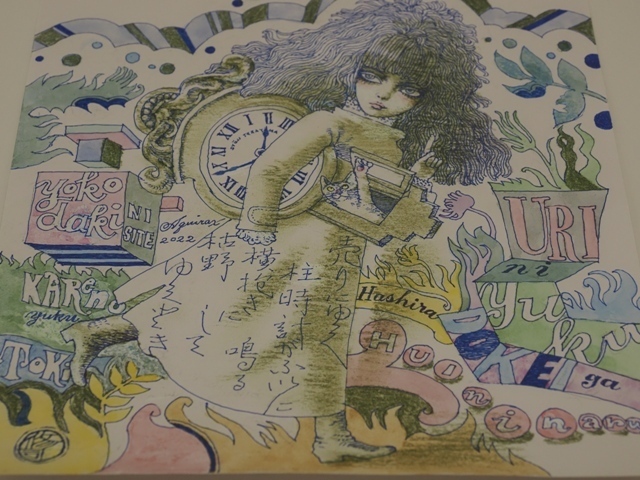 yoko
daki
NI
SITE
Aquirax
2022
売りにゆく
柱時計がふいに
鳴る
横抱きにして
枯野
ゆくとき
URI
ni
yuku
Hashira
DOKEI ga
HUI ni naru
KAReno
yuku
TOKI